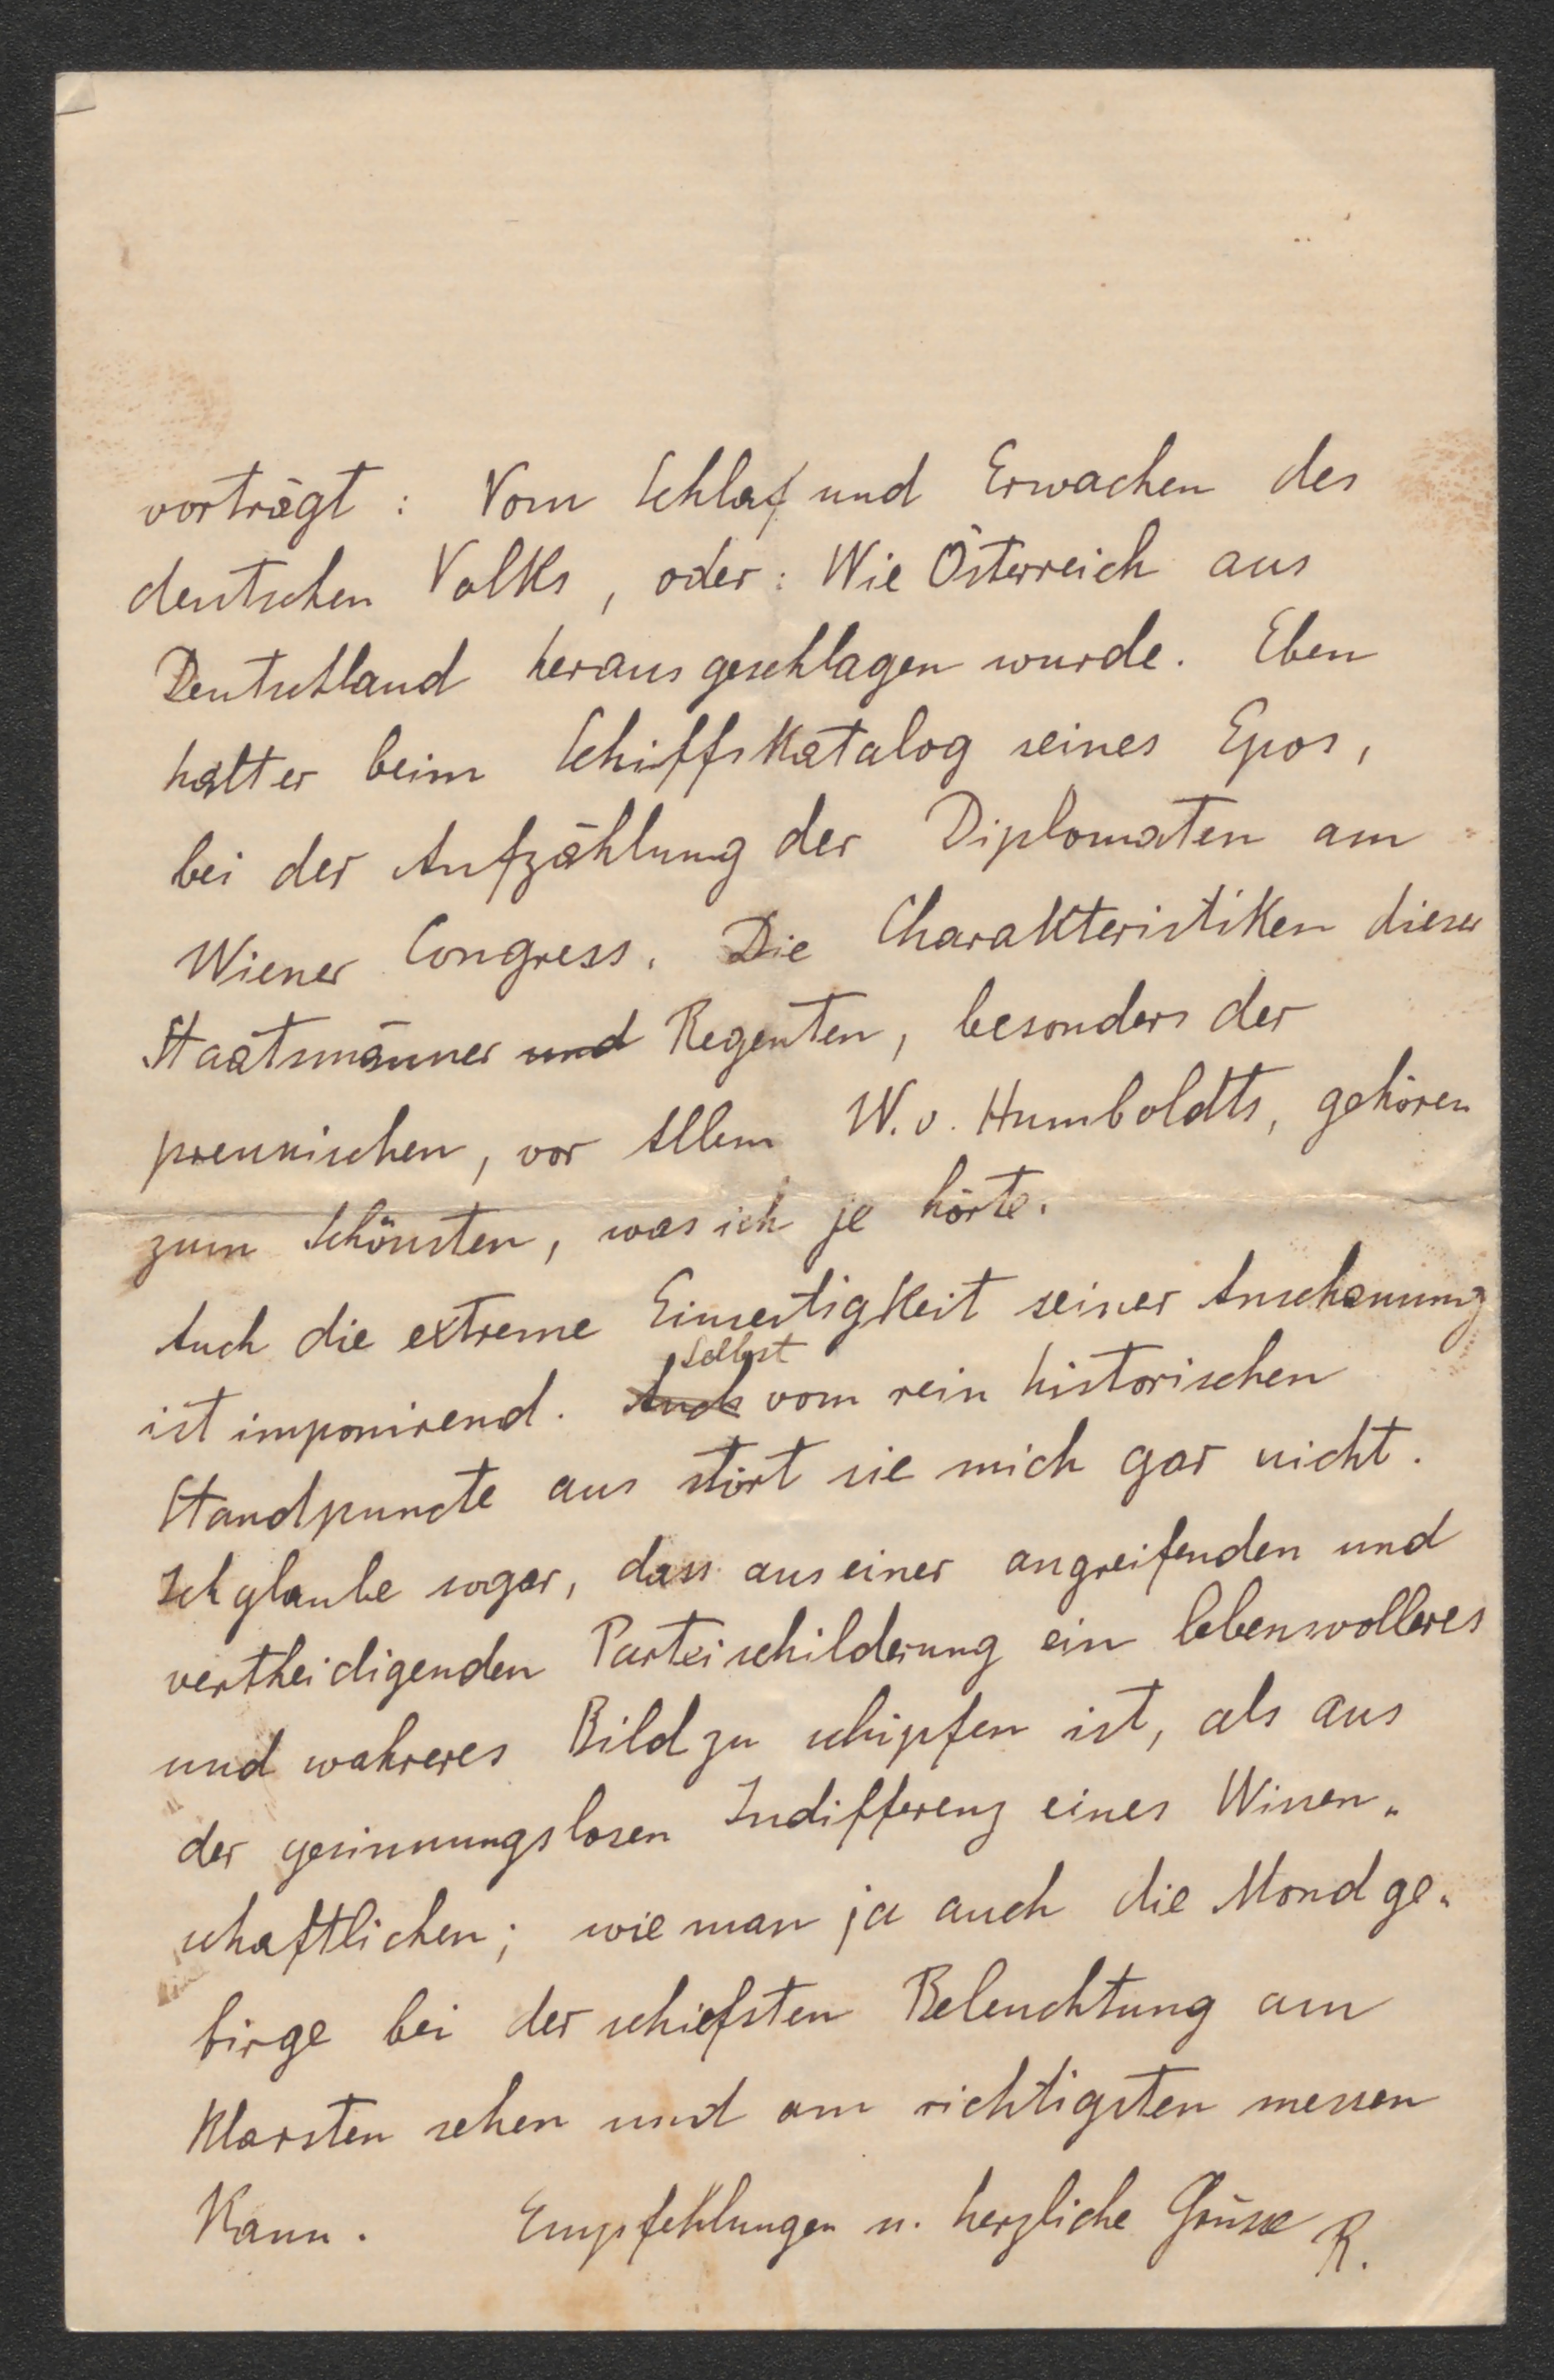 vorträgt : Vom Schlaf und Erwachen des
deutschen Volks , oder : Wie Österreich aus
Deutschland herausgeschlagen wurde. Eben
hält er beim Schiffskatalog seines Epos,
bei der Aufzählung der Diplomaten am
Wiener Congress. Die Charakteristiken dieser
Staatsmänner und Regenten, besonders der
preussischen, vor Allem W. v. Humboldts, gehören
zum Schönsten, was ich je hörte.
Auch die extreme Einseitigkeit seiner Anschauung
selbst
ist imponirend. Auch vom rein historischen
Standpuncte aus stört sie mich gar nicht.
Ich glaube sogar, dass aus einer angreifenden und
vertheidigenden Parteischilderung ein lebensvolleres
und wahreres Bild zu schöpfen ist, als aus
der gesinnungslosen Indifferenz eines Wissen-
schaftlichen; wie man ja auch die Mondge-
birge bei der schiefsten Beleuchtung am
Klarsten sehen und am richtigsten messen
Kann. Empfehlungen u. herzliche Grüsse R.